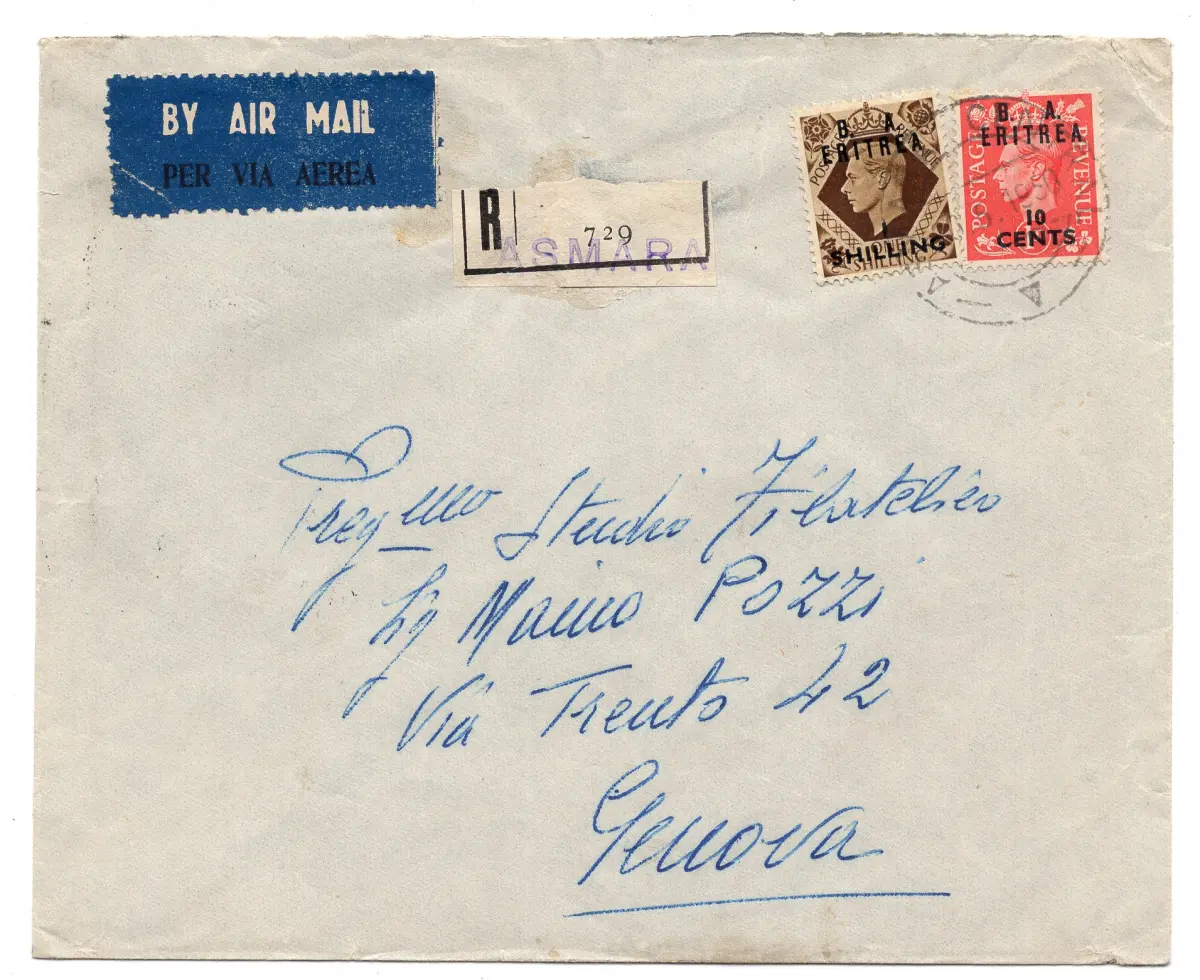 BY AIR MAIL
PER VIA AEREA
R
729
ASMARA
B. A.
ERITREA
1
SHILLING
SHILLING
B. A.
ERITREA
POSTAGE
REVENUE
10
CENTS
1950
Preg_mo Studio Filatelico
Sig Pozzi
Via Trento 42
Genova